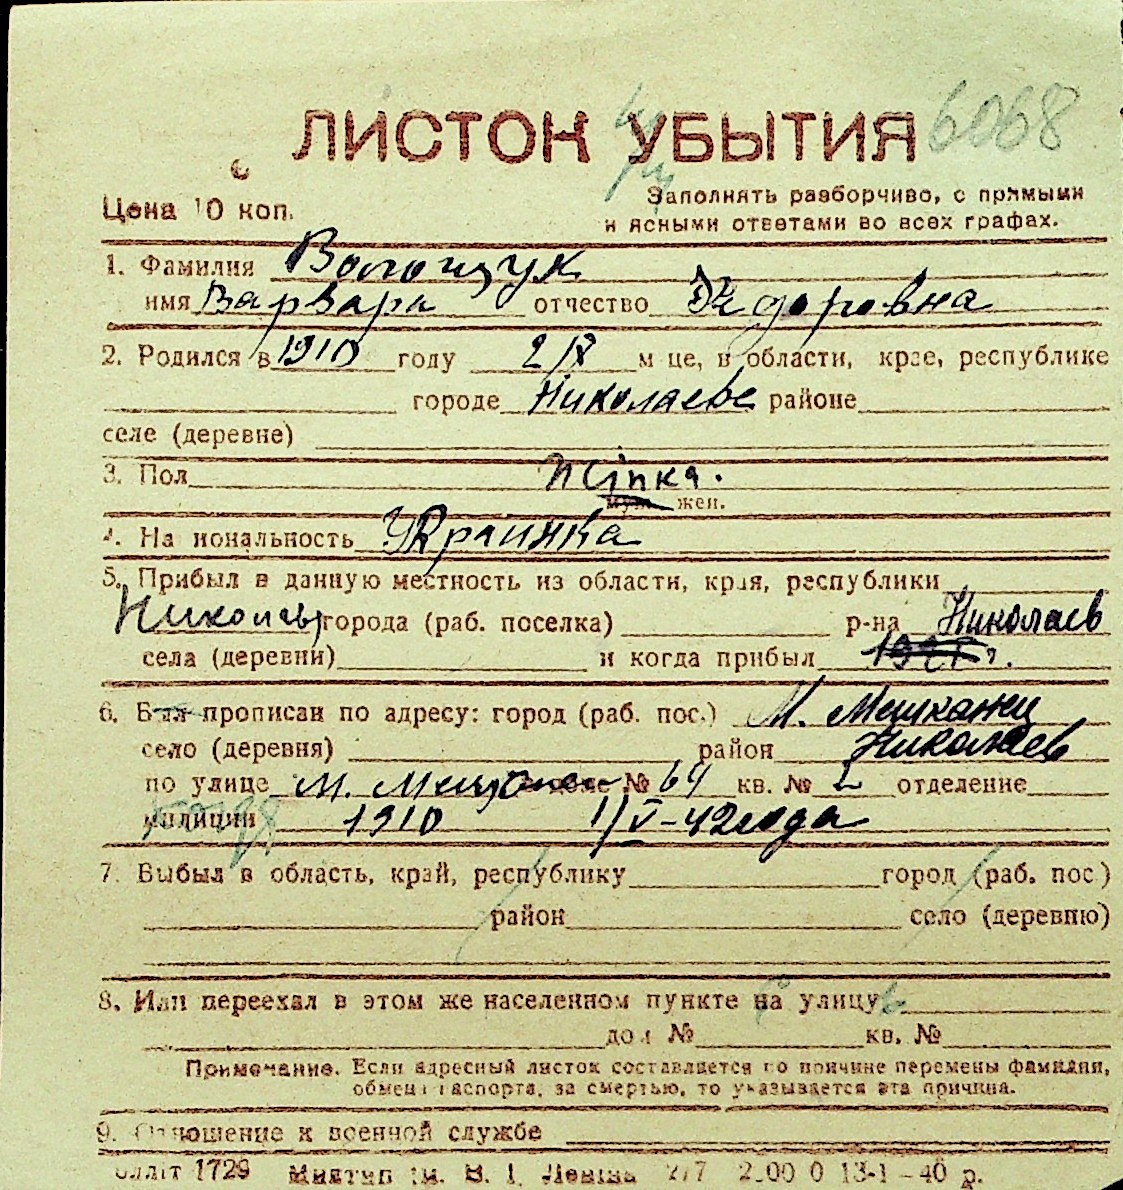 ЛИСТОК УБЫТИЯ 6068
Цена 10 коп.
Заполнять разборчиво, с прямыми
и ясными ответами во всех графах.
1. Фамилия Волощук
имя Варвара отчество Федоровна
2. Родился в 1910 году 2/X м це, в области, крае, республике
городе Николаеве районе
селе (деревне)
3. Пол
муж. жен.
4. На иональность Украинка
5. Прибыл в данную местность из области, края, республики
Николаев города (раб. поселка) р-на Николаев
села (деревни) и когда прибыл
6. Был прописан по адресу: город (раб. пос.) М.
село (деревня) район Николаев
по улице М. № 64 кв. № 2 отделение
милиции 1910 1/V-42 года
7. Выбыл в область, край, республику город (раб. пос.)
район село (деревню)
8. Или переехал в этом же населенном пункте на улицу
дом № кв. №
Примечание. Если адресный листок составляется по причине перемены фамилии,
обмена паспорта, за смертью, то указывается эта причина.
9. Отношение к военной службе
1729 ім. В. І. Леніна 13-1-40 р.